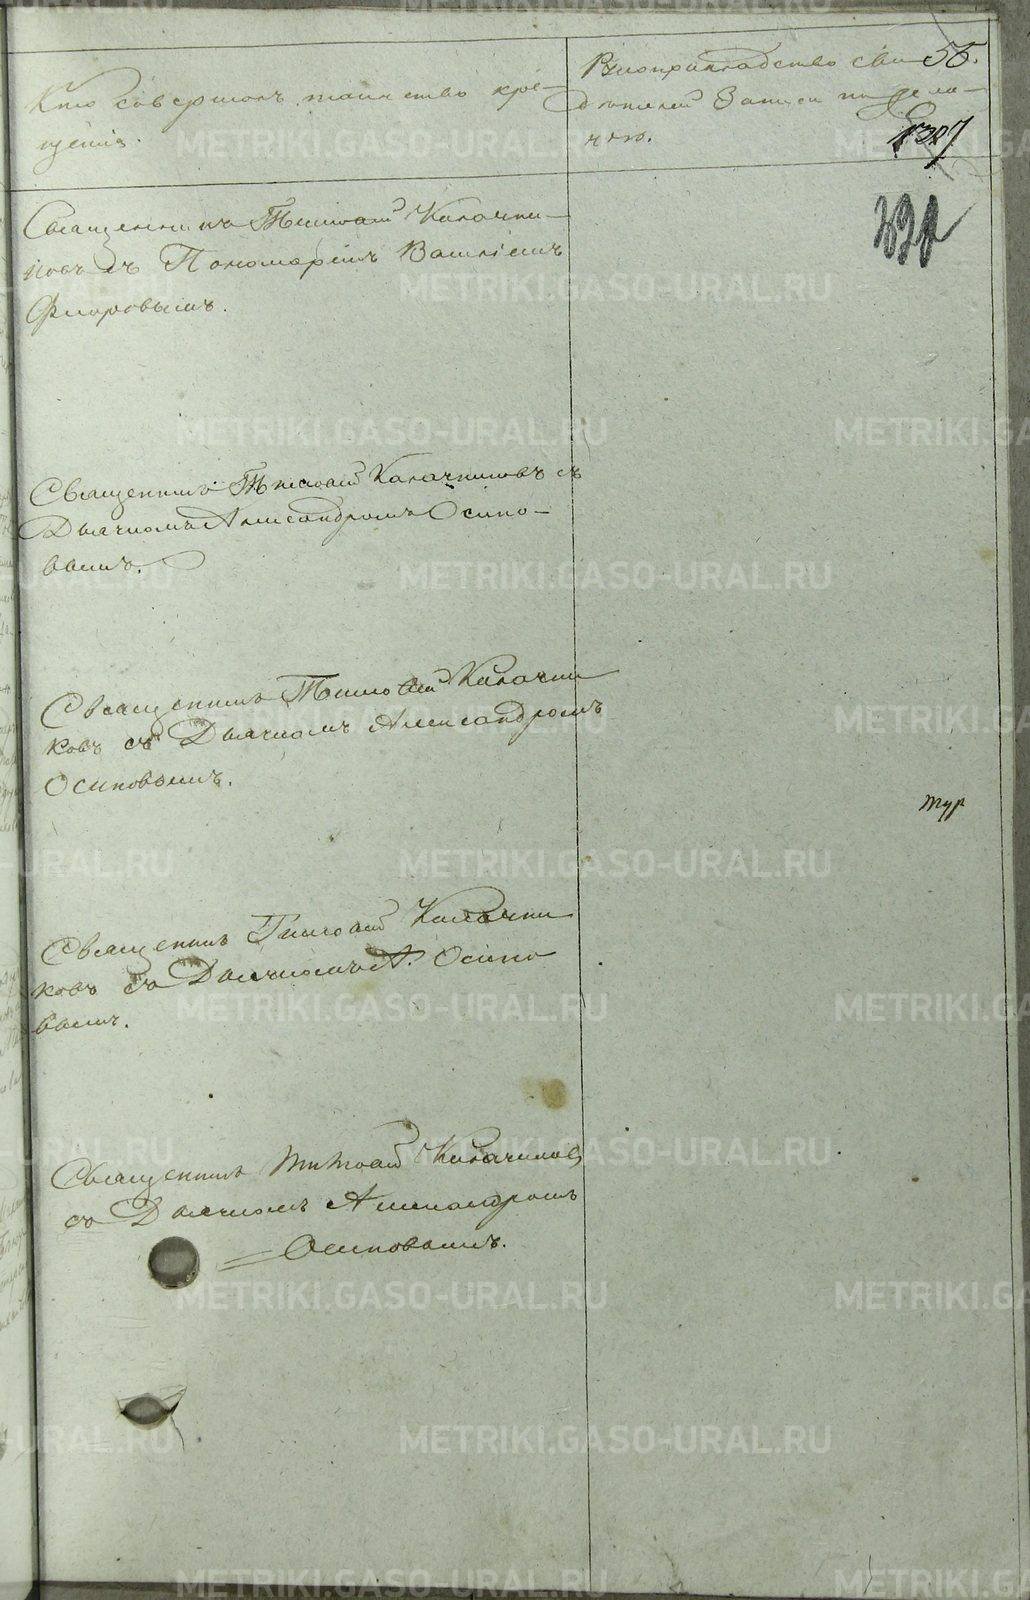 Кто совершалъ таинство кре-
щенія.
Рукоприкладство сви-
дѣтелей записи по жела-
нію.
56.
1327
Священникъ Тимоѳей Калачни-
ковъ съ Пономаремъ Василіемъ
Флоровымъ.
Священникъ Тимоѳей Калачниковъ съ
Дьячкомъ Александромъ Осипо-
вымъ.
Священникъ Тимоѳей Калачни
ковъ съ Дьячкомъ Александромъ
Осиповымъ.
тур
Священникъ Тимоѳей Калачни
ковъ съ Дьячкомъ А. Осипо
вымъ.
Священникъ Тимоѳей Калачниковъ
съ Дьячкомъ Александромъ
Осиповымъ.
METRIKI.GASO-URAL.RU